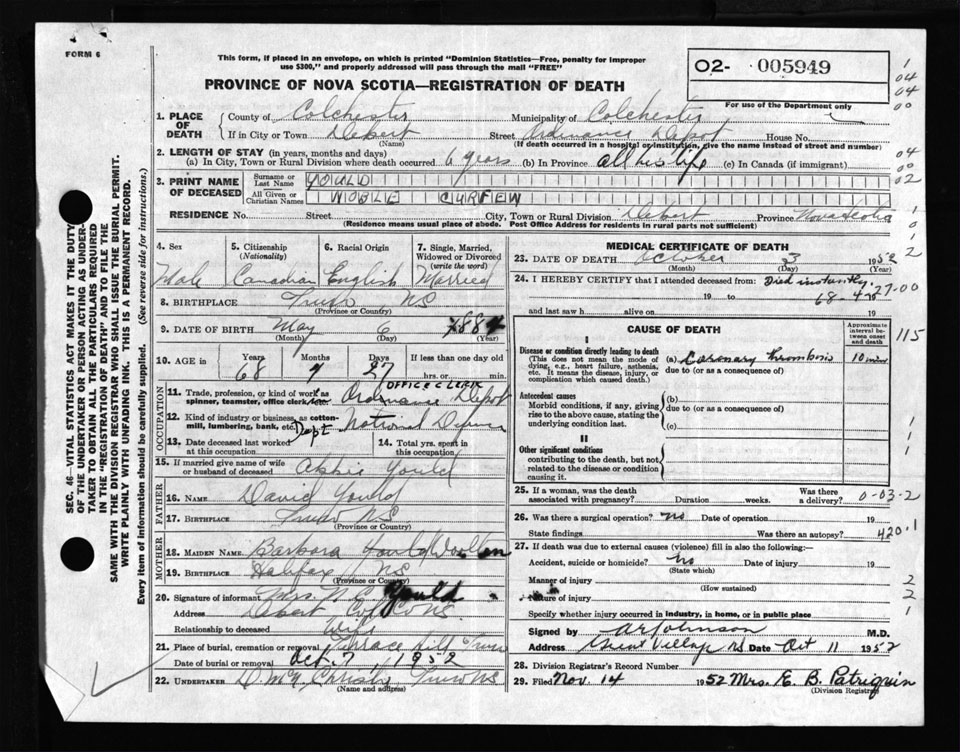 FORM 6
This form, if placed in an envelope, on which is printed "Dominion Statistics—Free, penalty for improper
use $300," and properly addressed will pass through the mail "FREE"
02- 005949
PROVINCE OF NOVA SCOTIA—REGISTRATION OF DEATH
For use of the Department only
1. PLACE OF DEATH
County of Colchester Municipality of Colchester
If in City or Town Debert Street Ordinance Depot House No.
(Name) (If death occurred in a hospital or institution, give the name instead of street and number)
2. LENGTH OF STAY (in years, months and days)
(a) In City, Town or Rural Division where death occurred 6 years (b) In Province all his life (c) In Canada (if immigrant)
3. PRINT NAME OF DECEASED
Surname or Last Name YOULD
All Given or Christian Names NOBLE CURFEW
RESIDENCE No. Street City, Town or Rural Division Debert Province Nova Scotia
(Residence means usual place of abode. Post Office Address for residents in rural parts not sufficient)
4. Sex Male
5. Citizenship (Nationality) Canadian
6. Racial Origin English
7. Single, Married, Widowed or Divorced (write the word) Married
8. BIRTHPLACE Truro NS
(Province or Country)
9. DATE OF BIRTH May 6 1884
(Month) (Day) (Year)
10. AGE in Years Months Days If less than one day old
68 4 27 hrs. or min.
OCCUPATION
11. Trade, profession or kind of work as spinner, teamster, office clerk, etc. OFFICE CLERK Ordinance Depot
12. Kind of industry or business, as cotton-mill, lumbering, bank, etc. Dept National Defence
13. Date deceased last worked at this occupation
14. Total yrs. spent in this occupation
15. If married give name of wife or husband of deceased Yould
FATHER
16. NAME David Yould
17. BIRTHPLACE Truro NS
(Province or Country)
MOTHER
18. MAIDEN NAME Barbara Yould
19. BIRTHPLACE Halifax NS
(Province or Country)
20. Signature of informant Mrs. N.C. Yould
Address Debert Col Co NS
Relationship to deceased Wife
21. Place of burial, cremation or removal Terrace Hill Truro
Date of burial or removal Oct. 7, 1952
22. UNDERTAKER Christie Truro NS
(Name and address)
MEDICAL CERTIFICATE OF DEATH
23. DATE OF DEATH October 3 1952
(Month) (Day) (Year)
24. I HEREBY CERTIFY that I attended deceased from: Died instantly.
19 to 19
68-4-27-00
and last saw h alive on 19
CAUSE OF DEATH
Approximate interval between onset and death
I
Disease or condition directly leading to death (a) Coronary thrombosis 10 min
(This does not mean the mode of dying, e.g., heart failure, asthenia, etc. It means the disease, injury, or complication which caused death.)
due to (or as a consequence of)
Antecedent causes
Morbid conditions, if any, giving rise to the above cause, stating the underlying condition last.
(b)
due to (or as a consequence of)
(c)
II
Other significant conditions
contributing to the death, but not related to the disease or condition causing it.
25. If a woman, was the death associated with pregnancy? Duration weeks. Was there a delivery? 0-03-2
26. Was there a surgical operation? No Date of operation 19
State findings Was there an autopsy? 420.1
27. If death was due to external causes (violence) fill in also the following:—
Accident, suicide or homicide? No Date of injury 19
(State which)
Manner of injury
(How sustained)
Nature of injury
Specify whether injury occurred in industry, in home, or in public place
Signed by A R Johnson M.D.
Address Great Village NS Date Oct 11 1952
28. Division Registrar's Record Number
29. Filed Nov. 14 1952 Mrs. E. B. Patriquin
(Division Registrar)
SEC. 46—VITAL STATISTICS ACT MAKES IT THE DUTY
OF THE UNDERTAKER OR PERSON ACTING AS UNDER-
TAKER TO OBTAIN ALL THE PARTICULARS REQUIRED
IN THE "REGISTRATION OF DEATH" AND TO FILE THE
SAME WITH THE DIVISION REGISTRAR WHO SHALL ISSUE THE BURIAL PERMIT.
WRITE PLAINLY WITH UNFADING INK. THIS IS A PERMANENT RECORD.
Every item of information should be carefully supplied. (See reverse side for instructions.)
1
04
04
00
04
00
02
1
0
1
2
115
1
1
1
2
2
1